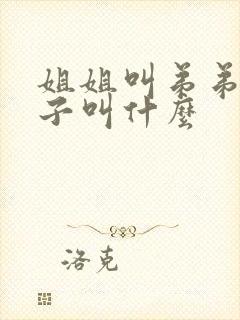 姐姐叫弟弟
子叫什麼
洛克